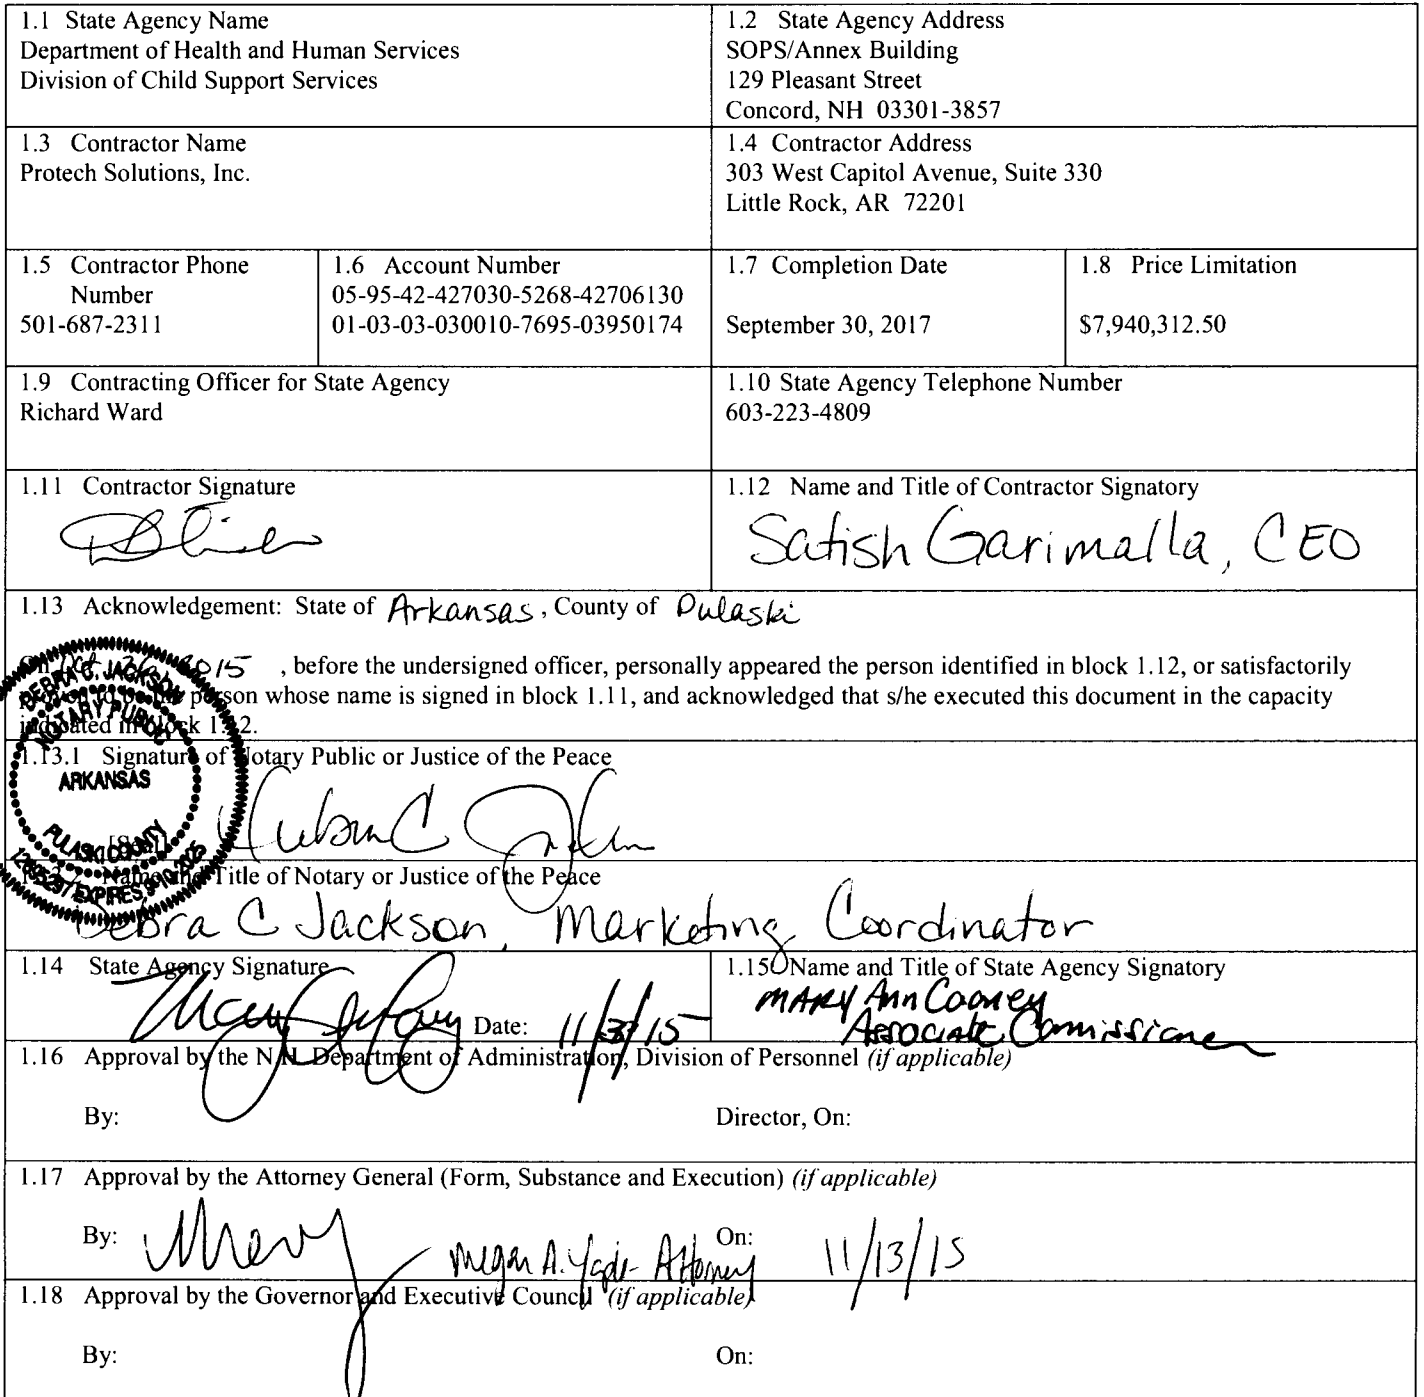 1.1 State Agency Name
Department of Health and Human Services
Division of Child Support Services
1.2 State Agency Address
SOPS/Annex Building
129 Pleasant Street
Concord, NH 03301-3857
1.3 Contractor Name
Protech Solutions, Inc.
1.4 Contractor Address
303 West Capitol Avenue, Suite 330
Little Rock, AR 72201
1.5 Contractor Phone
Number
501-687-2311
1.6 Account Number
05-95-42-427030-5268-42706130
01-03-03-030010-7695-03950174
1.7 Completion Date
September 30, 2017
1.8 Price Limitation
$7,940,312.50
1.9 Contracting Officer for State Agency
Richard Ward
1.10 State Agency Telephone Number
603-223-4809
1.11 Contractor Signature
1.12 Name and Title of Contractor Signatory
Satish Garimalla, CEO
1.13 Acknowledgement: State of Arkansas, County of Pulaski
On Oct 26 2015, before the undersigned officer, personally appeared the person identified in block 1.12, or satisfactorily
person whose name is signed in block 1.11, and acknowledged that s/he executed this document in the capacity
indicated in block 1.12.
DEBRA C. JACKSON
NOTARY PUBLIC
ARKANSAS
PULASKI COUNTY
EXPIRES 9-10-2025
1.13.1 Signature of Notary Public or Justice of the Peace
[Seal]
Name and Title of Notary or Justice of the Peace
Debra C Jackson, Marketing Coordinator
1.14 State Agency Signature
Date: 11/3/15
1.15 Name and Title of State Agency Signatory
Mary Ann Cooney
Associate Comissioner
1.16 Approval by the N.H. Department of Administration, Division of Personnel (if applicable)
By:
Director, On:
1.17 Approval by the Attorney General (Form, Substance and Execution) (if applicable)
By: Megan A. - Attorney
On: 11/13/15
1.18 Approval by the Governor and Executive Council (if applicable)
By:
On: